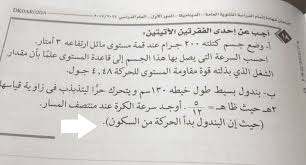 امتحان شهادة إتمام الدراسة الثانوية العامة - الديناميكا - الدور الأول - العام الدراسي ٢٠١٦/٢٠١٧
أجب عن إحدى الفقرتين الآتيتين:
أ. وضع جسم كتلته ٢٠٠ جرام عند قمة مستوى مائل ارتفاعه ٣ أمتار.
احسب السرعة التي يصل بها هذا الجسم إلى قاعدة المستوى علمًا بأن مقدار
الشغل الذي بذلته قوة مقاومة المستوى للحركة ٤,٤٨ جول.
ب. بندول بسيط طول خيطه ١٣٠ سم ويتحرك حرًا ليتذبذب في زاوية قياسها
٢ هـ حيث ظا هـ = ٥/١٢ . أوجد سرعة الكرة عند منتصف المسار.
(حيث إن البندول بدأ الحركة من السكون).